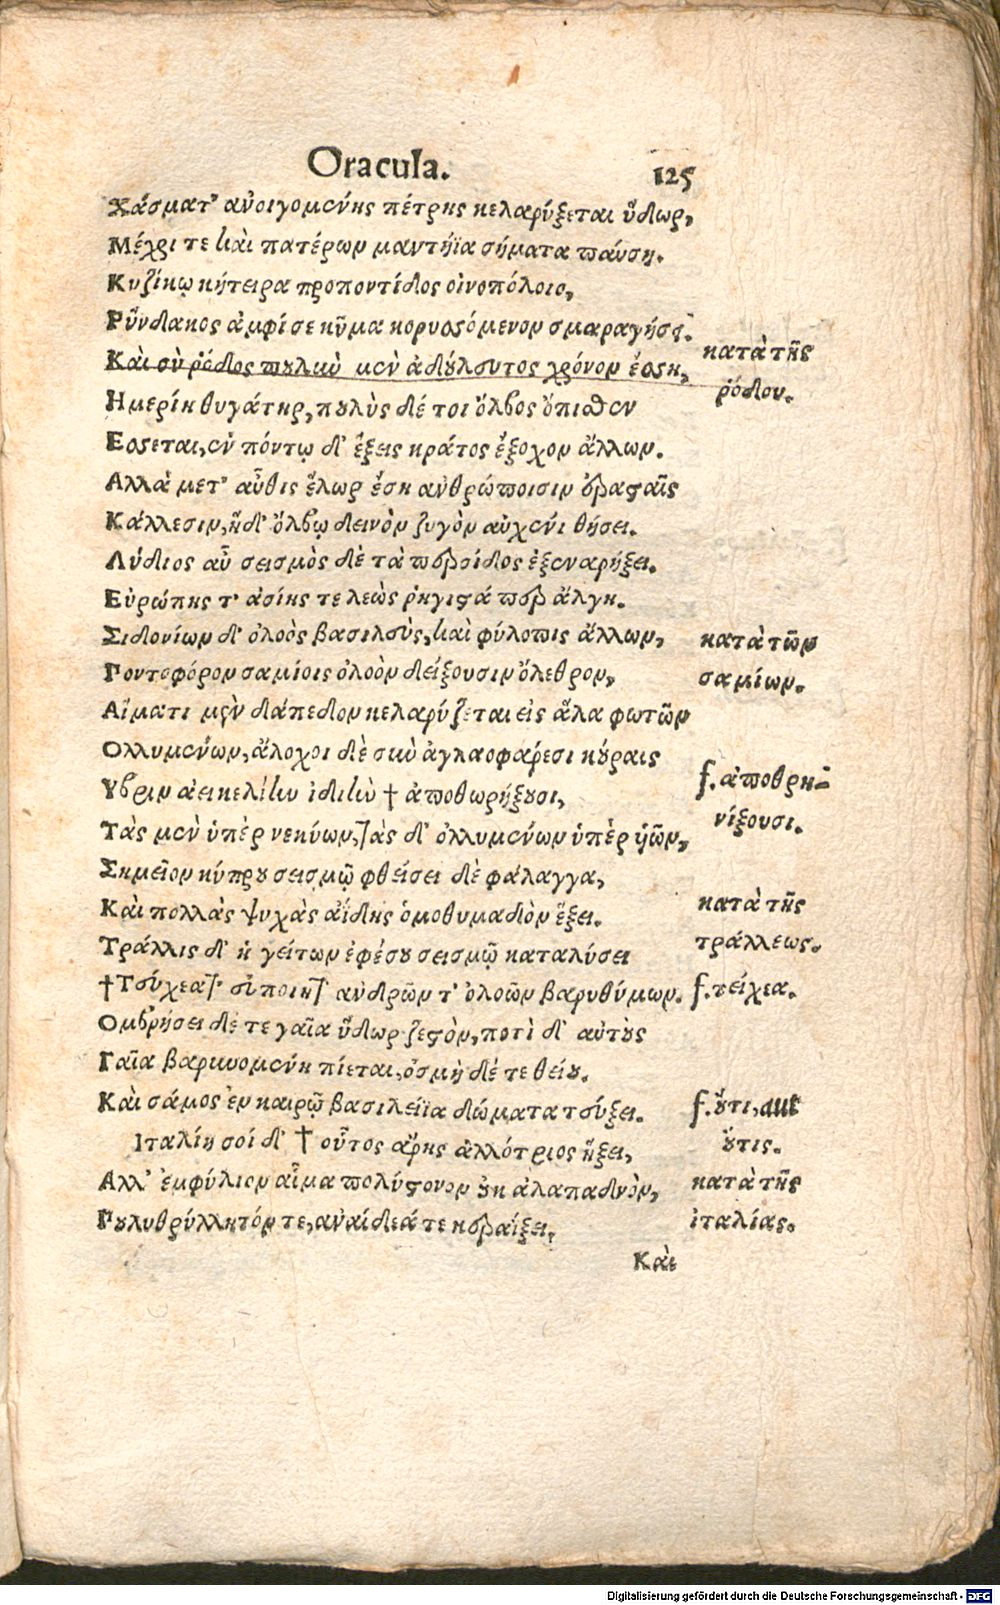 Oracula. 125
Χάσματ' ἀνοιγομένης πέτρης κελαρύξεται ὕδωρ,
Μέχρι τε καὶ πατέρων μαντήϊα σήματα παύση.
Κυζίκῳ κήτειρα προποντίδος οἰνοπόλοιο,
Ρύνδακος ἀμφίσε κῦμα κορυσσόμενον σμαραγήσει.
Καὶ σὺ ῥόδος πουλὺν μὲν ἀδούλευτος χρόνον ἔσση,
κατὰ τῆς
ῥόδου.
Ημερίη θυγάτηρ, πουλὺς δέ τοι ὄλβος ὄπισθεν
Εσσεται, ἐν πόντῳ δ' ἕξεις κράτος ἔξοχον ἄλλων.
Αλλὰ μετ' αὖθις ἕλωρ ἔση ἀνθρώποισιν ἐρασταῖς
Κάλλεσιν, ἠδ' ὄλβῳ δεινὸν ζυγὸν αὐχένι θήσει.
Λύδιος αὖ σεισμὸς δὲ τὰ περσίδος ἐξεναρήξει.
Εὐρώπης τ' ἀσίης τε λεὼς ῥηγιστά περ ἄλγη.
Σιδονίων δ' ὀλοὸς βασιλεὺς, καὶ φύλοπις ἄλλων,
κατὰ τῶν
Ποντοφόρον σαμίοις ὀλοὸν δείξουσιν ὄλεθρον,
σαμίων.
Αἵματι μὲν δάπεδον κελαρύζεται εἰς ἅλα φωτῶν
Ολλυμένων, ἄλοχοι δὲ σὺν ἀγλαοφαρέσι κούραις
Υβριν ἀεικελίην ἰδίην † ἀποθωρήξουσι,
f. ἀποθρη-
νίξουσι.
Τὰς μὲν ὑπὲρ νεκύων, τὰς δ' ὀλλυμένων ὑπὲρ ὑῶν,
Σημεῖον κύπρου σεισμῷ φθείσει δὲ φάλαγγα,
Καὶ πολλὰς ψυχὰς ἀΐδης ὁμοθυμαδὸν ἕξει.
κατὰ τῆς
Τράλλις δ' ἡ γείτων ἐφέσου σεισμῷ καταλύσει
τράλλεως.
†Τεύχεα τ' εὐποιητ' ἀνδρῶν τ' ὀλοῶν βαρυθύμων.
f. τείχεα.
Ομβρήσει δέ τε γαῖα ὕδωρ ζεστὸν, ποτὶ δ' αὐτοὺς
Γαῖα βαρυνομένη πίεται, ὀσμὴ δέ τε θείου.
Καὶ σάμος ἐν καιρῷ βασιλείϊα δώματα τεύξει.
f. οὔτι, aut
Ιταλίη σοί δ' † οὗτος ἄρης ἀλλότριος ἥξει,
οὔτις.
Αλλ' ἐμφύλιον αἷμα πολύστονον οὐκ ἀλαπαδνὸν,
κατὰ τῆς
Πουλυθρύλλητόν τε, ἀναίδεά τε κεραΐξει.
ἰταλίας.
Καὶ
Digitalisierung gefördert durch die Deutsche Forschungsgemeinschaft - DFG